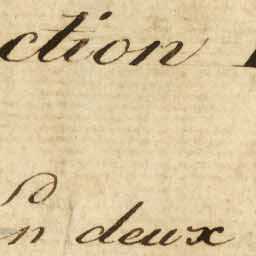 ction
n deux